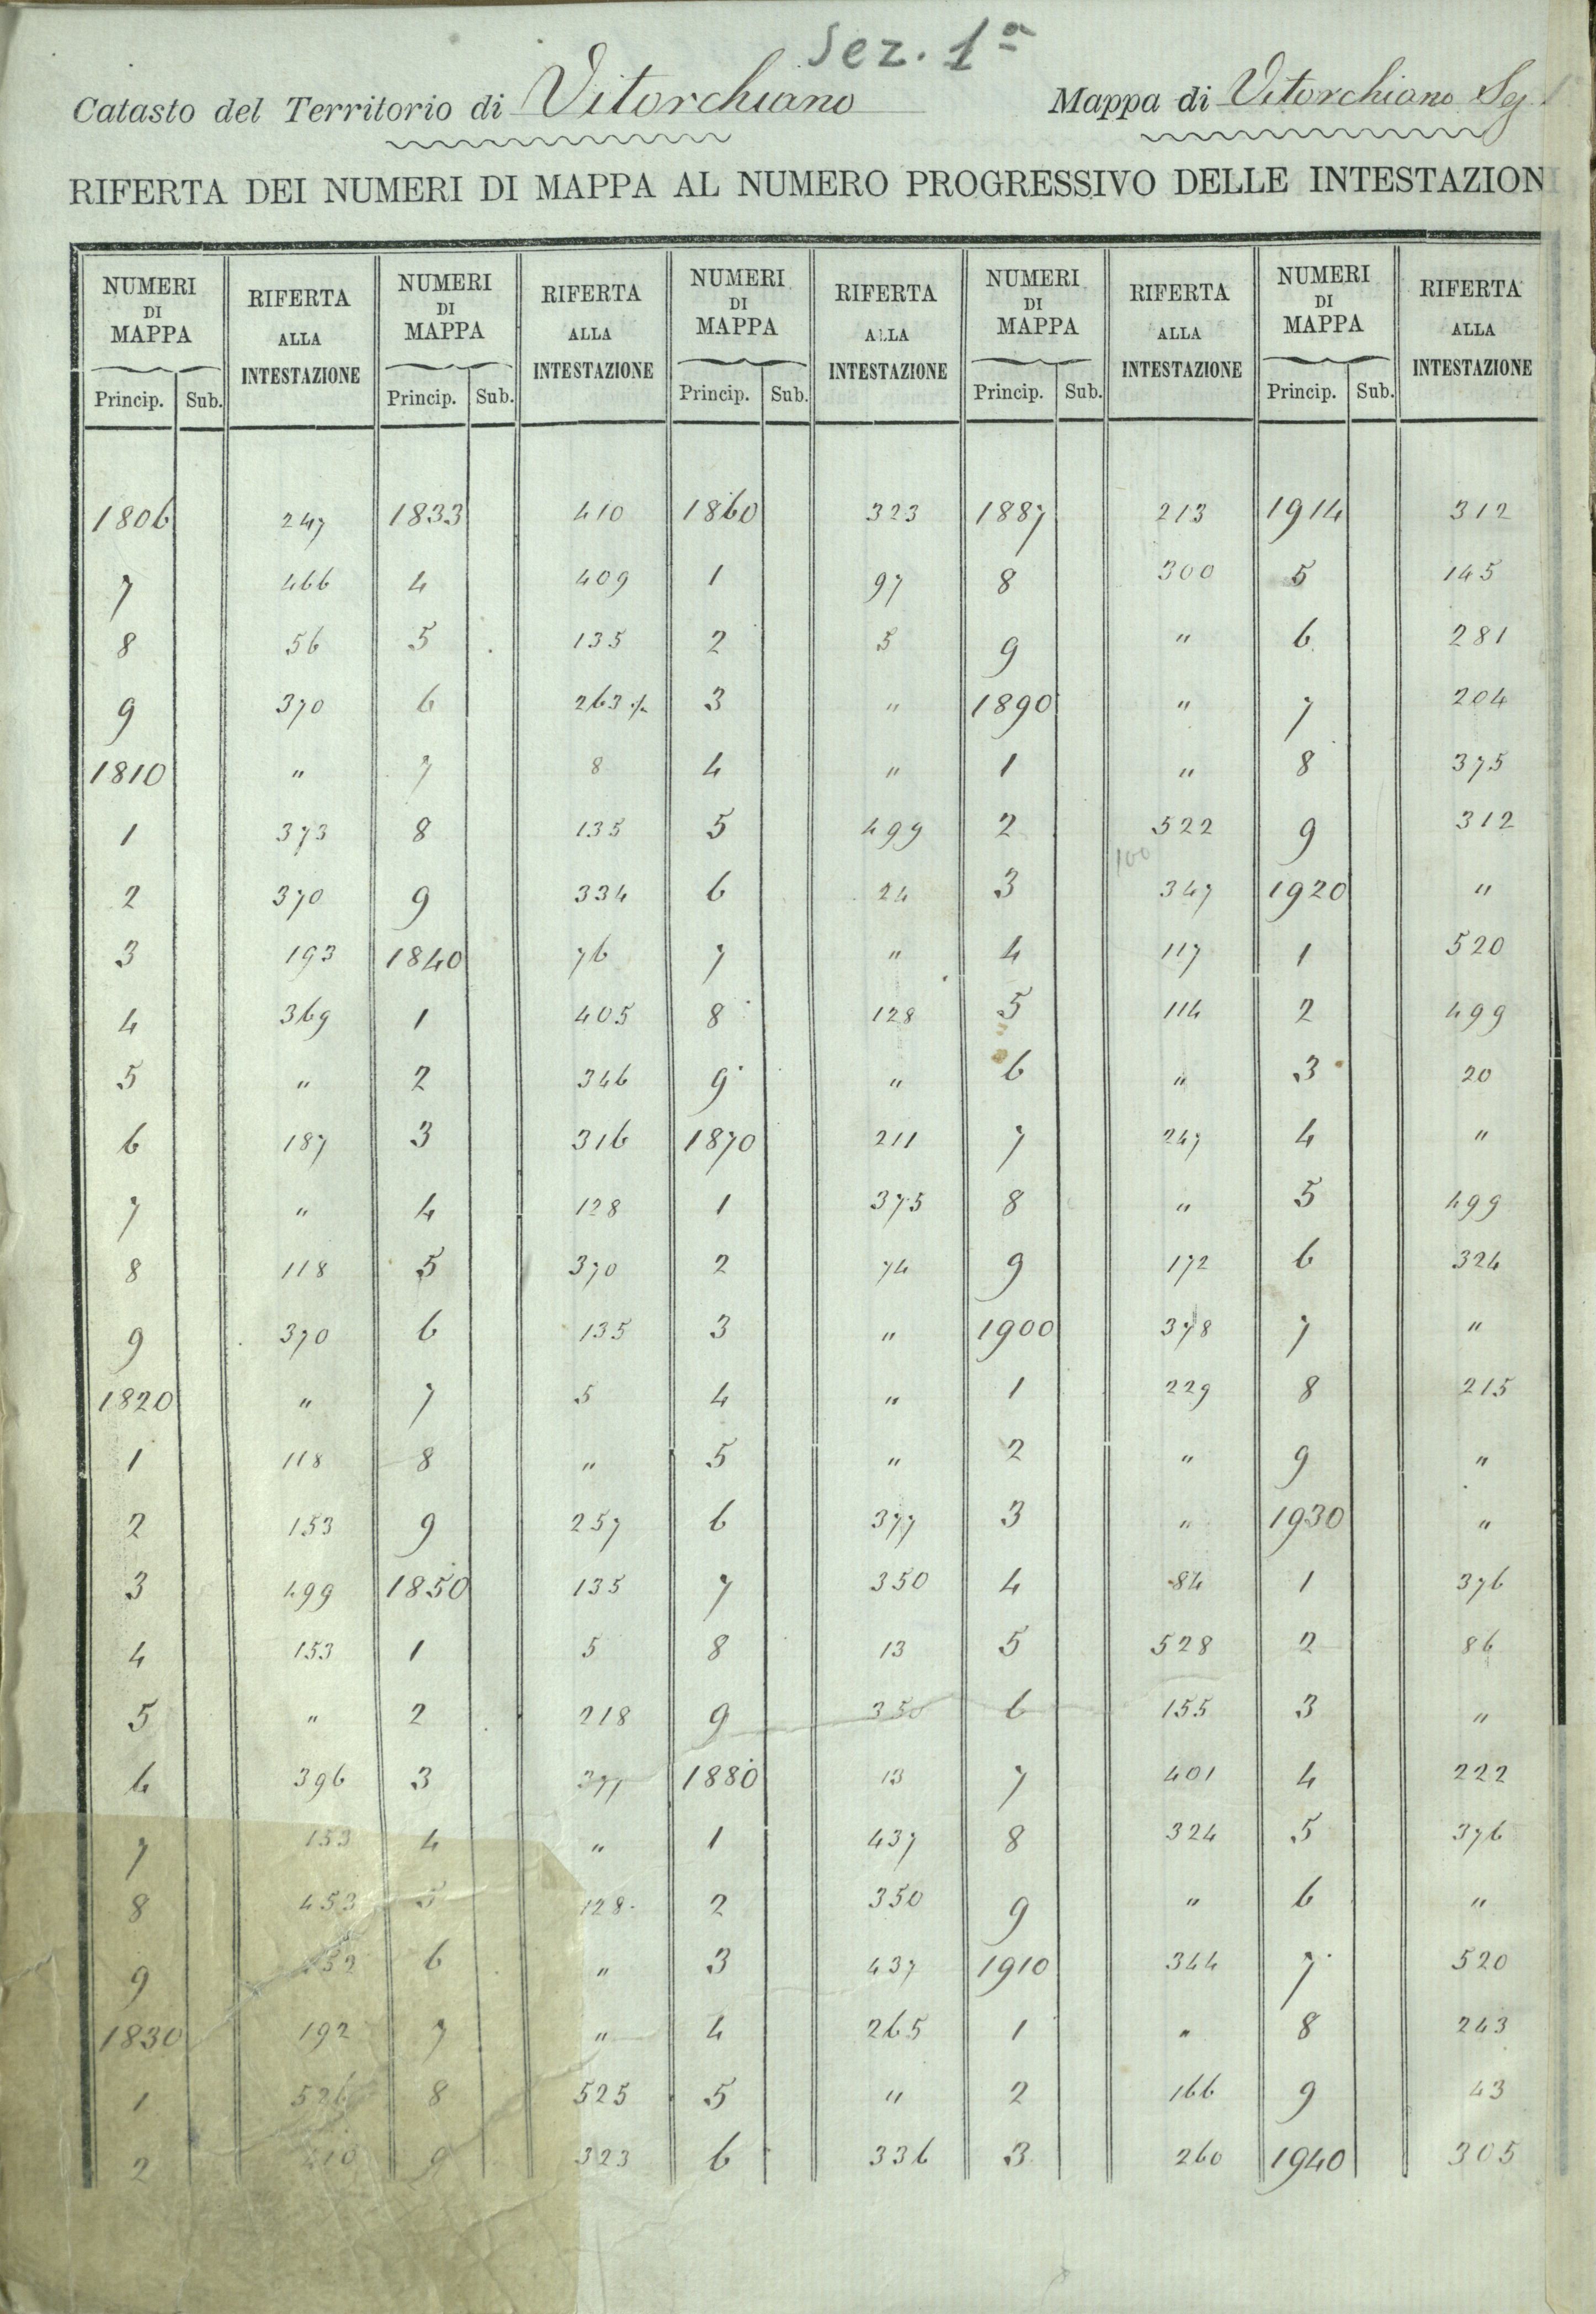 Sez. 1ª
Catasto del Territorio di Vitorchiano Mappa di Vitorchiano Sez
RIFERTA DEI NUMERI DI MAPPA AL NUMERO PROGRESSIVO DELLE INTESTAZIONI
NUMERI DI MAPPA RIFERTA ALLA INTESTAZIONE NUMERI DI MAPPA RIFERTA ALLA INTESTAZIONE NUMERI DI MAPPA RIFERTA ALLA INTESTAZIONE NUMERI DI MAPPA RIFERTA ALLA INTESTAZIONE NUMERI DI MAPPA RIFERTA ALLA INTESTAZIONE
Princip. Sub. Princip. Sub. Princip. Sub. Princip. Sub. Princip. Sub.
1806 247 1833 410 1860 323 1887 213 1914 312
7 466 4 409 1 97 8 300 5 145
8 56 5 135 2 5 9 " 6 281
9 370 6 263 3 " 1890 " 7 204
1810 " 7 8 4 " 1 " 8 375
1 373 8 135 5 499 2 522 9 312
100
2 370 9 334 6 24 3 347 1920 "
3 193 1840 76 7 " 4 117 1 520
4 369 1 405 8 128 5 114 2 499
5 " 2 346 9 " 6 " 3 20
6 187 3 316 1870 211 7 247 4 "
7 " 4 128 1 375 8 " 5 499
8 118 5 370 2 74 9 172 6 324
9 370 6 135 3 " 1900 378 7 "
1820 " 7 5 4 " 1 229 8 215
1 118 8 " 5 " 2 " 9 "
2 153 9 257 6 377 3 " 1930 "
3 499 1850 135 7 350 4 84 1 376
4 153 1 5 8 13 5 528 2 86
5 " 2 218 9 350 6 155 3 "
6 396 3 377 1880 13 7 401 4 222
7 153 4 " 1 437 8 324 5 376
8 453 5 128 2 350 9 " 6 "
9 6 " 3 437 1910 344 7 520
1830 192 7 " 4 265 1 " 8 243
1 526 8 525 5 " 2 166 9 43
2 410 9 323 6 336 3 260 1940 305